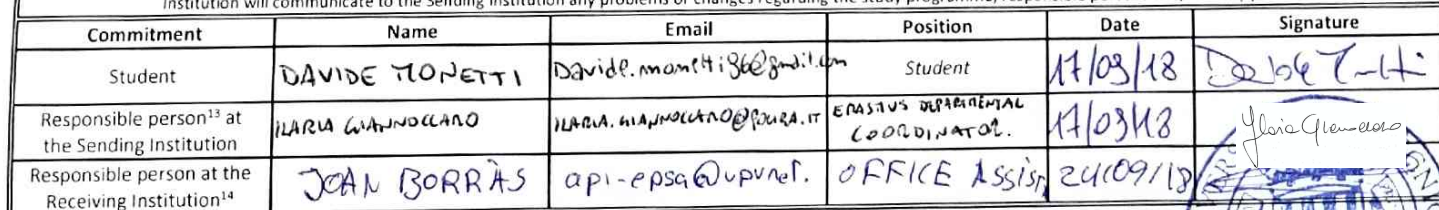 Institution will communicate to the Sending Institution any problems or changes regarding the study programme, responsible
Commitment Name Email Position Date Signature
Student DAVIDE MONETTI Davide.monetti96@gmail.com Student 17/09/18
Responsible person13 at the Sending Institution ILARIA GIANNOCCARO ILARIA.GIANNOCCARO@POLIBA.IT ERASMUS DEPARTMENTAL COORDINATOR. 17/09/18
Responsible person at the Receiving Institution14 JOAN BORRÀS api-epsa@upvnet. OFFICE Assist 24/09/18